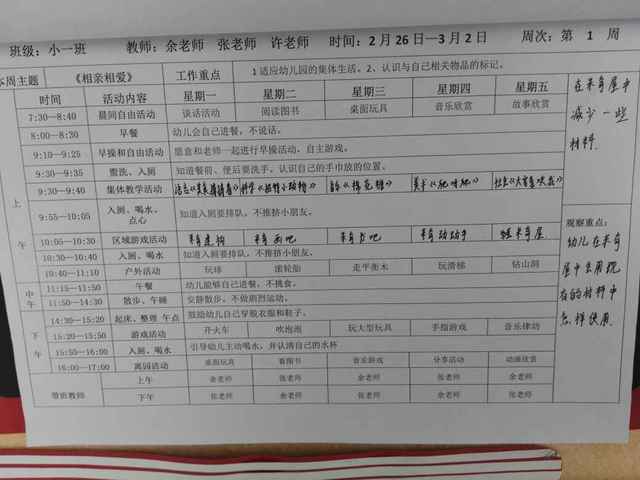 班级：小一班 教师：余老师 张老师 许老师 时间：2月26日—3月2日 周次：第 1 周
本周主题 《相亲相爱》 工作重点 1 适应幼儿园的集体生活。2、认识与自己相关物品的标记。
时间 活动内容 星期一 星期二 星期三 星期四 星期五
上午
7:30—8:40 晨间自由活动 谈话活动 阅读图书 桌面玩具 音乐欣赏 故事欣赏
8:00—8:30 早餐 幼儿会自己进餐，不说话。
9:10—9:25 早操和自由活动 愿意和老师一起进行早操活动，自主游戏。
9:25—9:30 盥洗、入厕 知道餐前、便后要洗手，认识自己的手巾放的位置。
9:30—9:40 集体教学活动
9:55—10:05 入厕、喝水、点心 知道入厕要排队，不推挤小朋友。
10:05—10:30 区域游戏活动 米奇建构 米奇画吧 米奇书吧 米奇动动手 米奇屋
10:30—10:40 入厕、喝水 知道入厕要排队，不推挤小朋友。
10:40—11:10 户外活动 玩球 滚轮胎 走平衡木 玩滑梯 钻山洞
中午
11:15—11:50 午餐 幼儿能够自己进餐，不挑食。
11:50—14:30 散步、午睡 安静散步，不做剧烈运动。
下午
14:30—15:20 起床、整理 午点 鼓励幼儿自己穿脱衣服和鞋子。
15:20—15:50 游戏活动 开火车 吹泡泡 玩大型玩具 手指游戏 音乐律动
15:50—16:00 入厕、喝水 引导幼儿主动喝水，并认清自己的水杯
16:00—17:00 离园活动 桌面玩具 看图书 音乐游戏 分享活动 动画欣赏
带班教师
上午 余老师 张老师 余老师 张老师 余老师
下午 张老师 余老师 张老师 余老师 张老师
在米奇屋中
减少一些
材料.
观察重点：
幼儿在米奇
屋中出现现
在的材料中
怎样使用.